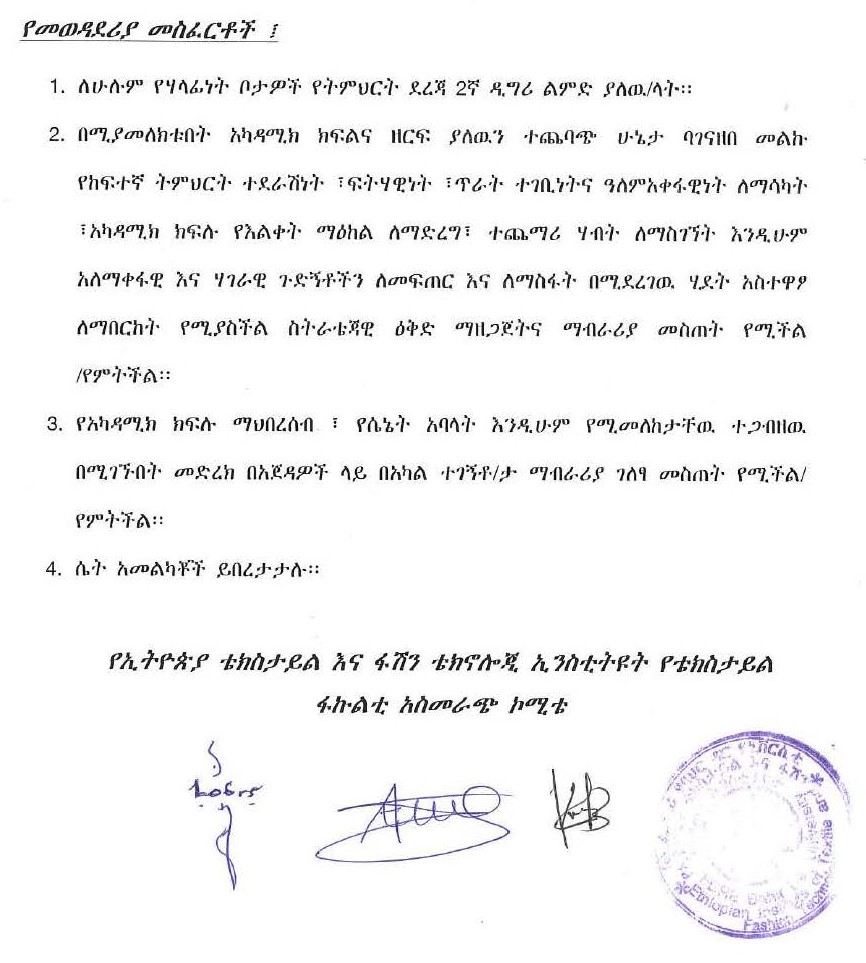 የመወዳደሪያ መስፈርቶች ፤
1. ለሁሉም የሃላፊነት ቦታዎች የትምህርት ደረጃ 2ኛ ዲግሪ ልምድ ያለዉ/ላት፡፡
2. በሚያመለክቱበት አካዳሚክ ክፍልና ዘርፍ ያለዉን ተጨባጭ ሁኔታ ባገናዘበ መልኩ
የከፍተኛ ትምህርት ተደራሽነት ፣ፍትሃዊነት ፣ጥራት ተገቢነትና ዓለምአቀፋዊነት ለማሳካት
፣አካዳሚክ ክፍሉ የእልቀት ማዕከል ለማድረግ፣ ተጨማሪ ሃብት ለማስገኘት እንዲሁም
አለማቀፋዊ እና ሃገራዊ ጉድኝቶችን ለመፍጠር እና ለማስፋት በሚደረገዉ ሃደት አስተዋፆ
ለማበርከት የሚያስችል ስትራቴጃዊ ዕቅድ ማዘጋጀትና ማብራሪያ መስጠት የሚችል
/የምትችል፡፡
3. የአካዳሚክ ክፍሉ ማህበረሰብ ፣ የሴኔት አባላት እንዲሁም የሚመለከታቸዉ ተጋብዘዉ
በሚገኙበት መድረክ በእጀዳዎች ላይ በአካል ተገኝቶ/ታ ማብራሪያ ገለፃ መስጠት የሚችል/
የምትችል፡፡
4. ሴት አመልካቾች ይበረታታሉ፡፡
የኢትዮጵያ ቴክስታይል እና ፋሽን ቴክኖሎጂ ኢንስቲትዩት የቴክስታይል
ፋኩልቲ አስመራጭ ኮሚቴ
Ethiopian Institute of Textile
Fashion Technology